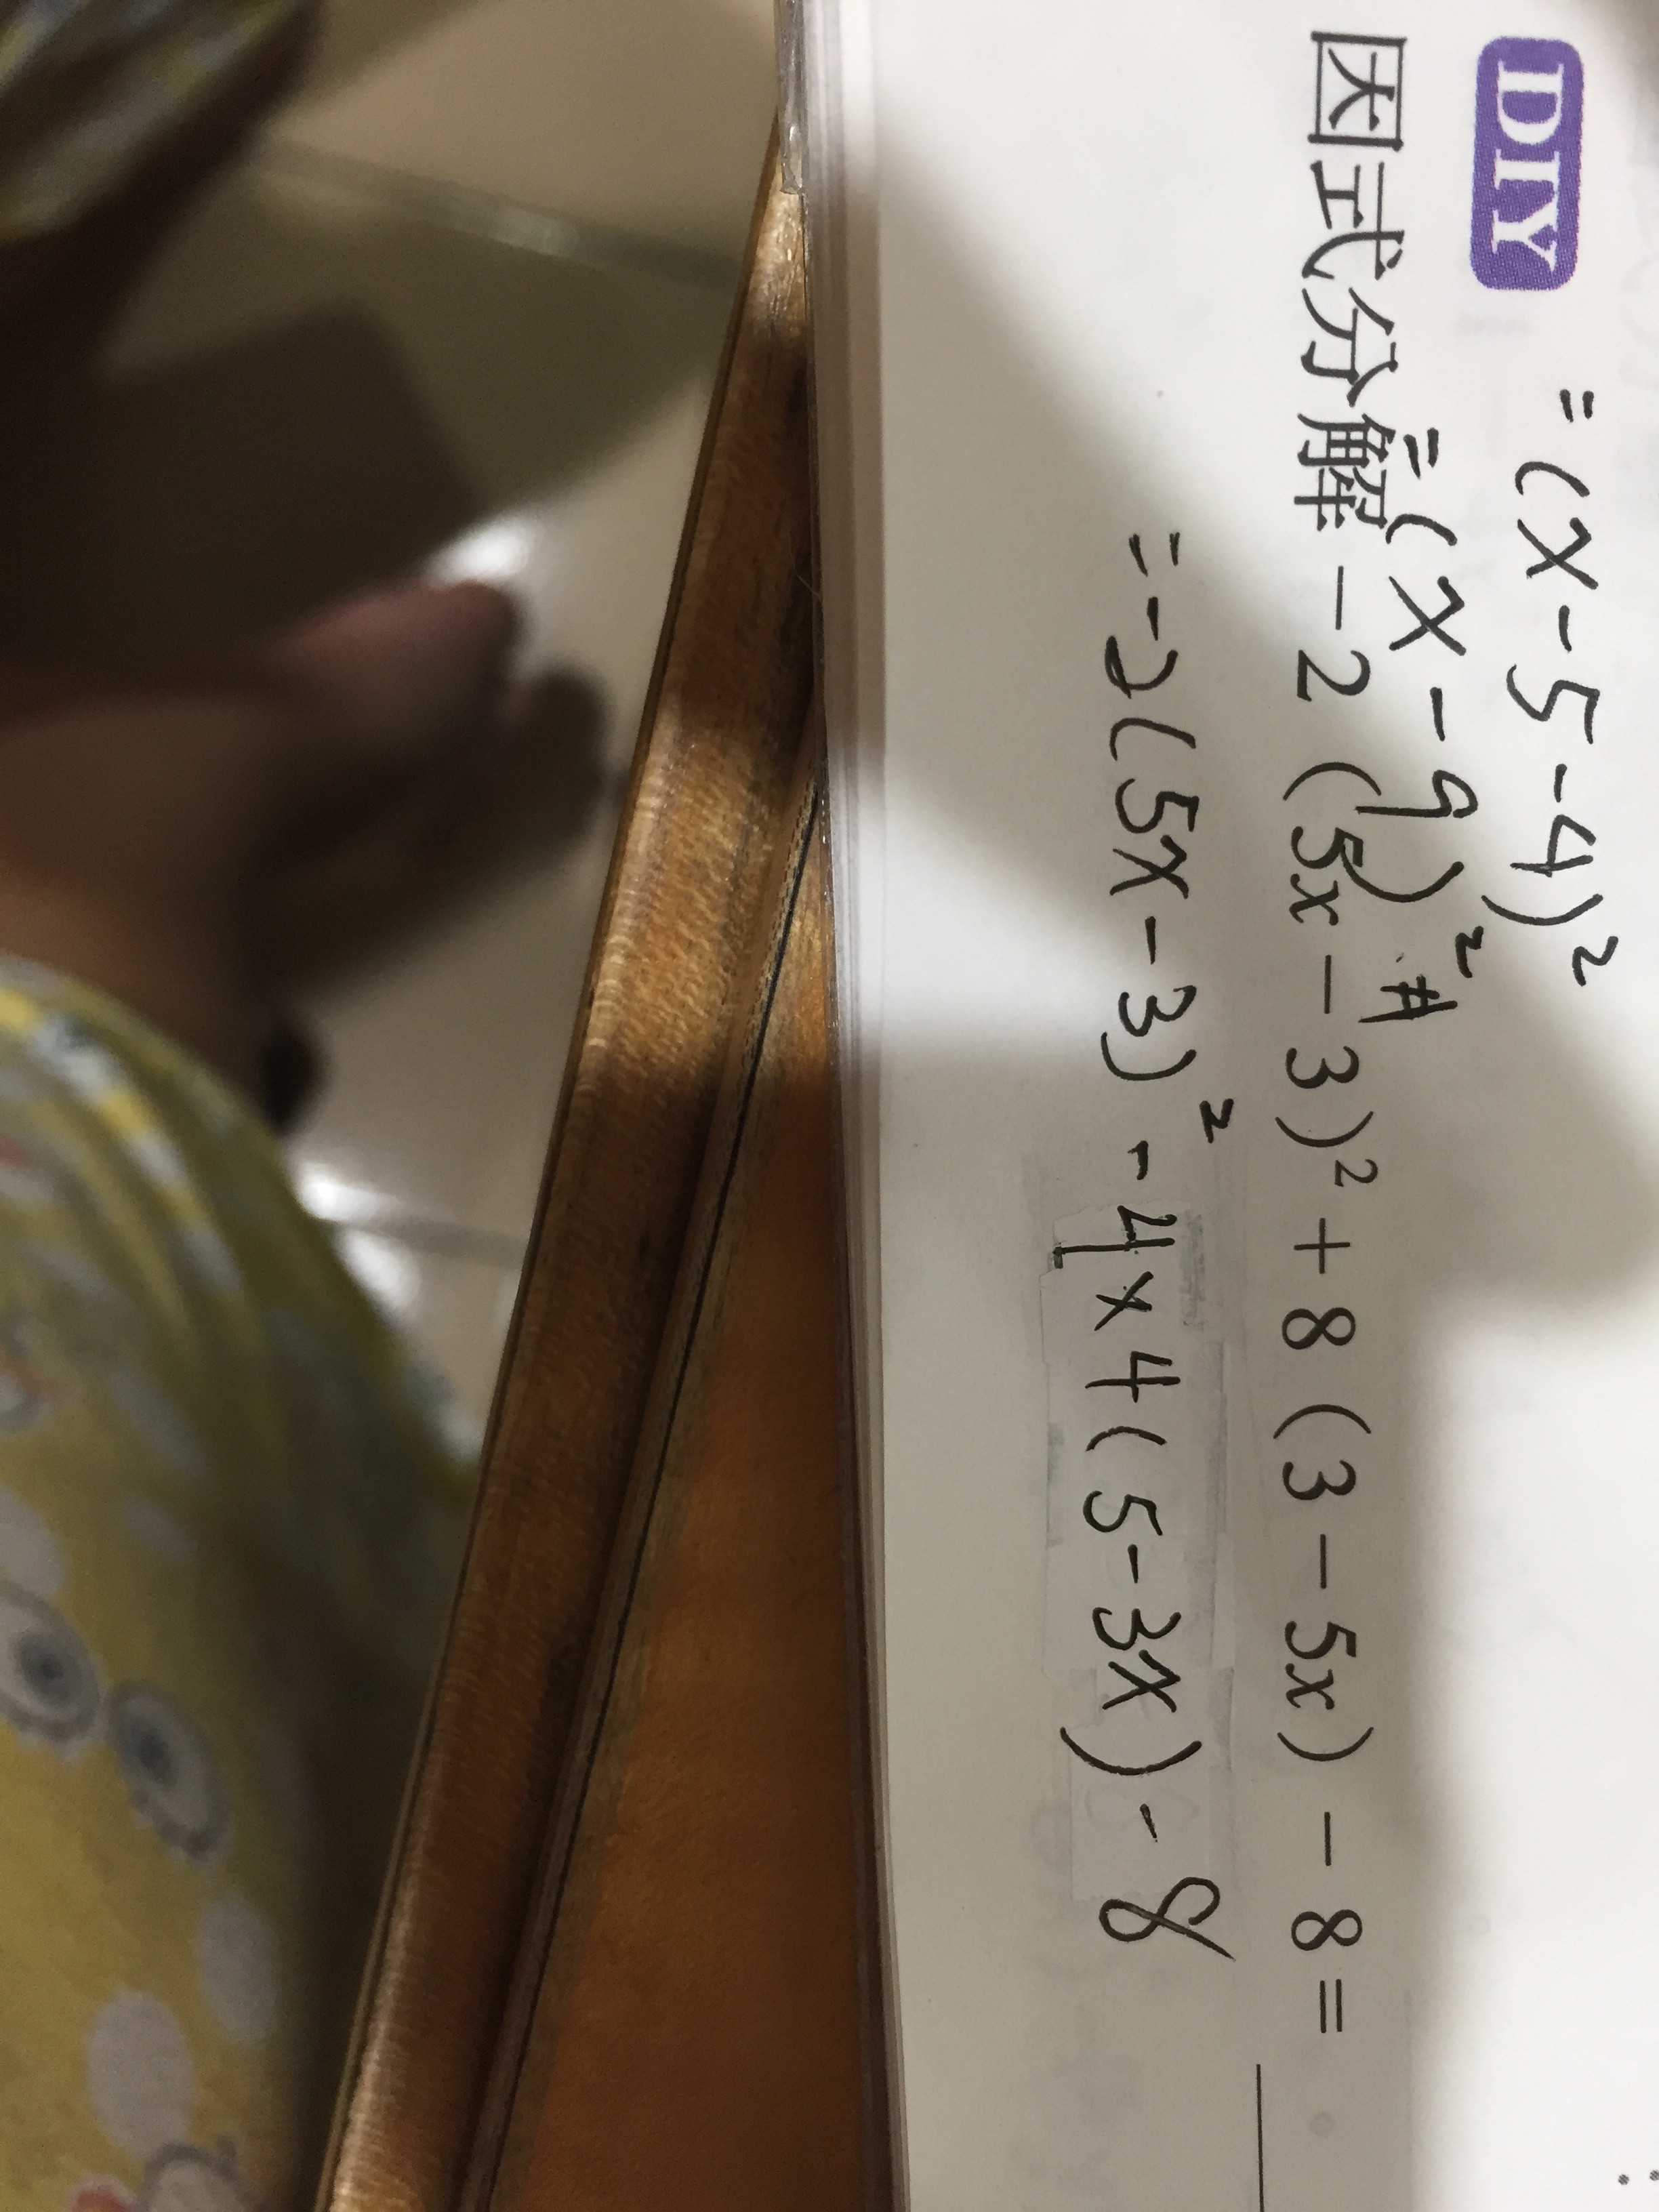 =(x-5-4)²
DIY
=(x-9)² #
因式分解 -2(5x-3)²+8(3-5x)-8=
=-2(5x-3)²-4×4(5-3x)-8